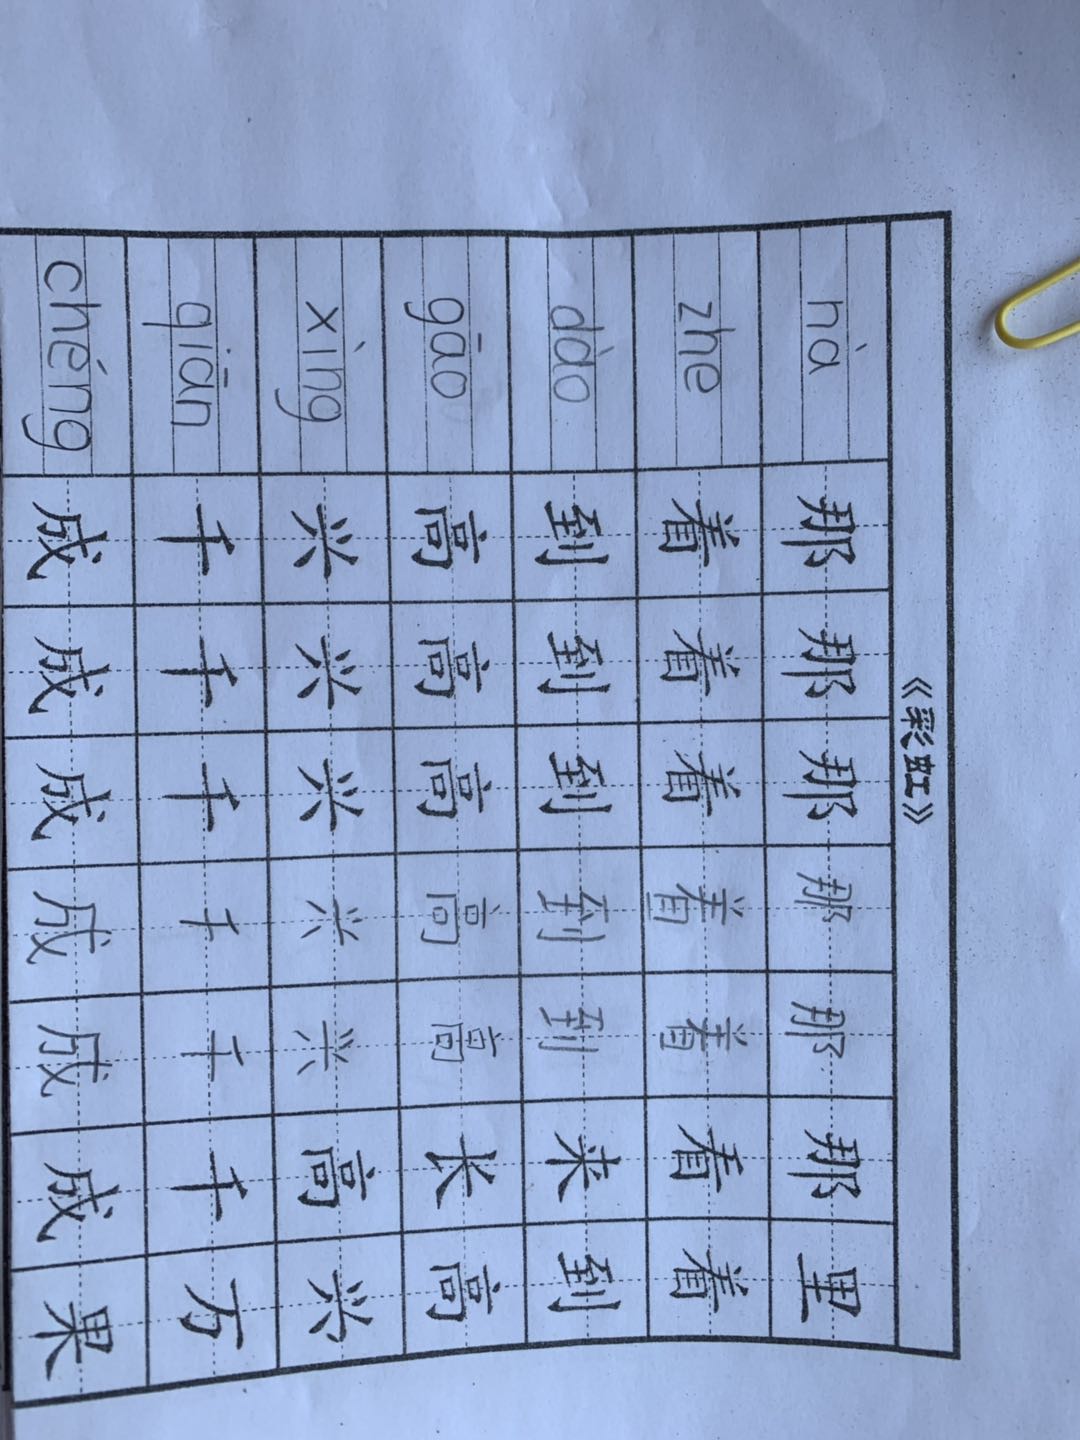 《彩虹》
nà 那 那 那 那 那 那 里
zhe 着 着 着 着 着 看 着
dào 到 到 到 到 到 来 到
gāo 高 高 高 高 高 长 高
xìng 兴 兴 兴 兴 兴 高 兴
qiān 千 千 千 千 千 千 万
chéng 成 成 成 成 成 成 果